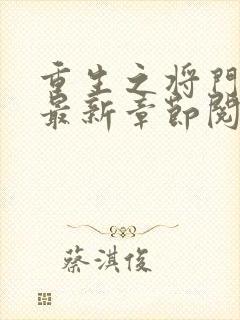 重生之将门
最新章节阅
蔡淇俊